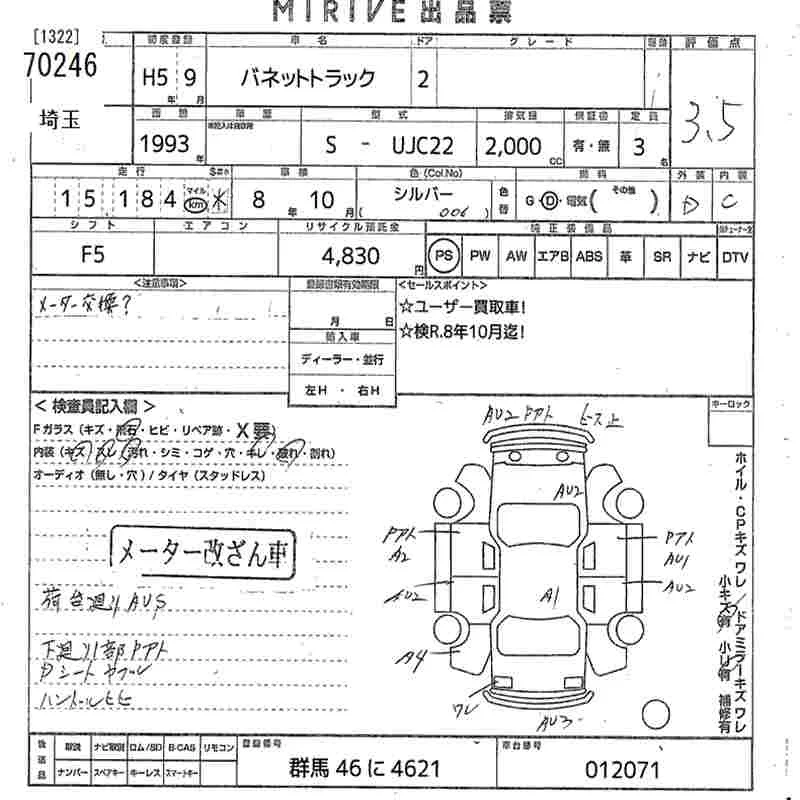 MIRIVE 出品票
[1322]
70246
埼玉
初度登録 車名 ドア グレード 評価点
H5 9 バネットトラック 2
年 月
3.5
車歴 型式 排気量 保証書 定員
1993 年 S - UJC22 2,000 cc 有・無 3 名
走行 車検 色(Col,No) 燃料 外装 内装
15,184 マイル km ※ 8 年 10 月 シルバー ( 006 ) 色替 G・D・電気 ( その他 ) D C
シフト エアコン リサイクル預託金 純正装備品
F5 4,830 円 PS PW AW エアB ABS 革 SR ナビ DTV
<注意事項>
メーター交換?
登録書類有効期限
月 日
輸入車
ディーラー・並行
左H ・ 右H
<セールスポイント>
☆ユーザー買取車!
☆検R.8年10月迄!
< 検査員記入欄 >
Fガラス (キズ・飛石・ヒビ・リペア跡・X要)
内装 (キズ・ヌレ・汚れ・シミ・コゲ・穴・キレ・破れ・割れ)
オーディオ (無し・穴) / タイヤ (スタッドレス)
メーター改ざん車
荷台廻りAUS
下廻り部Pアト
Pシートヤブレ
キーロック
AU2 Pアト
AU2
Pアト
A2
Pアト
AU1
AU2
AU2
A1
A4
ワレ
AU3
ホイル・CPキズ ワレ/ドアミラーキズ ワレ
小キズ有 小凹有 補修有
後送品 取説 ナビ取説 ロム/SD B-CAS リモコン
ナンバー スペアキー キーレス スマートキー
登録番号
群馬 46 に 4621
車台番号
012071